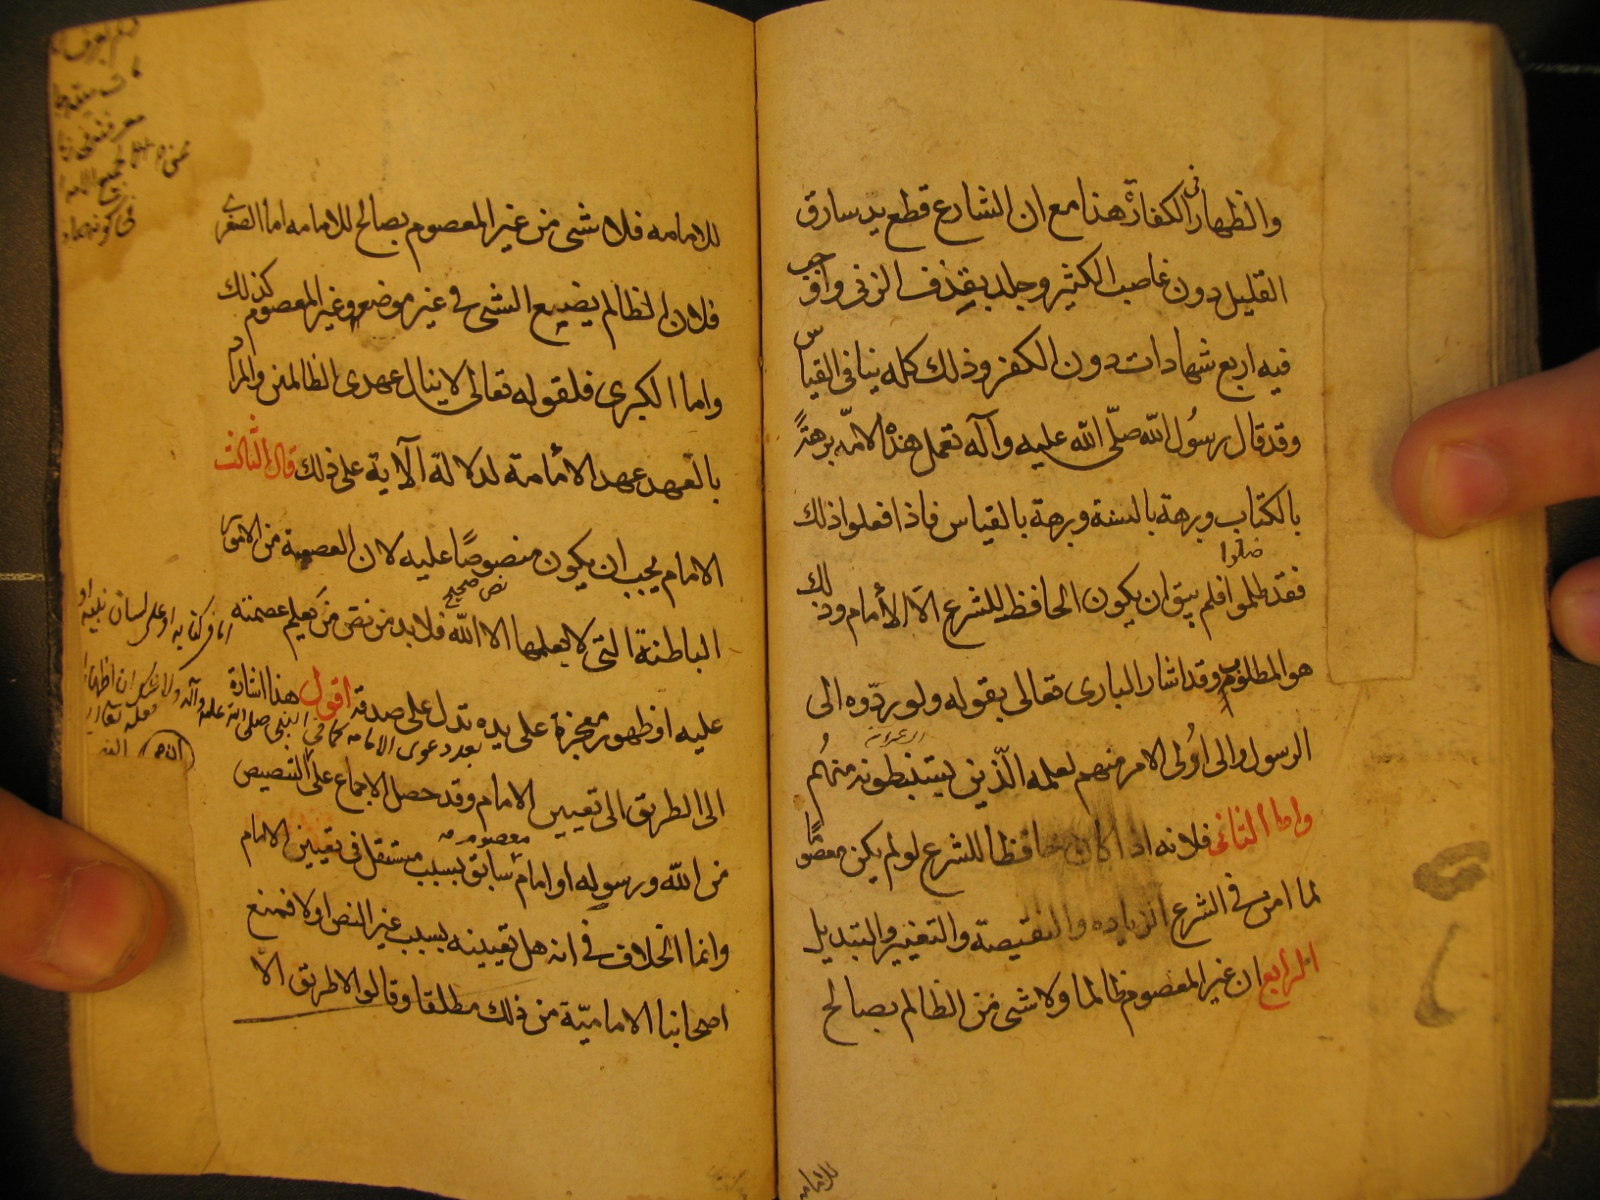 والظهار في الكفارة هذا مع ان الشارع قطع يد سارق
القليل دون غاصب الكثير وجلد بقذف الزنى واوجب
فيه اربع شهادات دون الكفر وذلك كله ينافي القياس
وقد قال رسول الله صلّى الله عليه وآله تعمل هذه الامّة برهةً
بالكتاب وبرهة بالسنة وبرهة بالقياس فاذا فعلوا ذلك
ضلوا
فقد ظلموا فلم يبق ان يكون الحافظ للشرع الّا الأمام وذلك
هو المطلوب وقد اشار البارى تعالى بقوله ولو ردّوه الى
الرسول والى اوُلى الامر منهم لعلمه الّذين يستنبطونه منهُم
واما الثانى فلانه اذا كان حافظا للشرع لو لم يكن معصومًا
لما امن في الشرع الزياده والنقيصة والتغيير والتبديل
الرابع ان غير المعصوم ظالما ولا شى من الظالم بصالح
للامامه
للامامه فلا شى من غير المعصوم بصالح للامامه اما الصغرى
فلان الظالم يضع الشى في غير موضعه وغير المعصوم كذلك
واما الكبرى فلقوله تعالى لا ينال عهدى الظالمين والمراد
بالعهد عهد الأمامة لدلالة الآية على ذلك قال الثالث
الامام يجب ان يكون منصوصًا عليه لان العصمة من الامور
نص صحيح
الباطنة التى لا يعلمها الا الله فلا بد من نص من يعلم عصمته
اما في كتابه او على لسان نبيه او
عليه او ظهور معجزة على يده تدل على صدقه اقول هذا اشارة
بعد دعوى الامامه كما في النبى صلى الله عليه وآله
الى الطريق الى تعيين الامام وقد حصل الاجماع على التنصيص
معصوم
من الله ورسوله او امام سابق بسبب مستقل في تعيين الامام
وانما الخلاف في انه هل تعيينه بسبب غير النص او لا فمنع
اصحابنا الاماميّة من ذلك مطلقا وقالوا لا طريق الّا